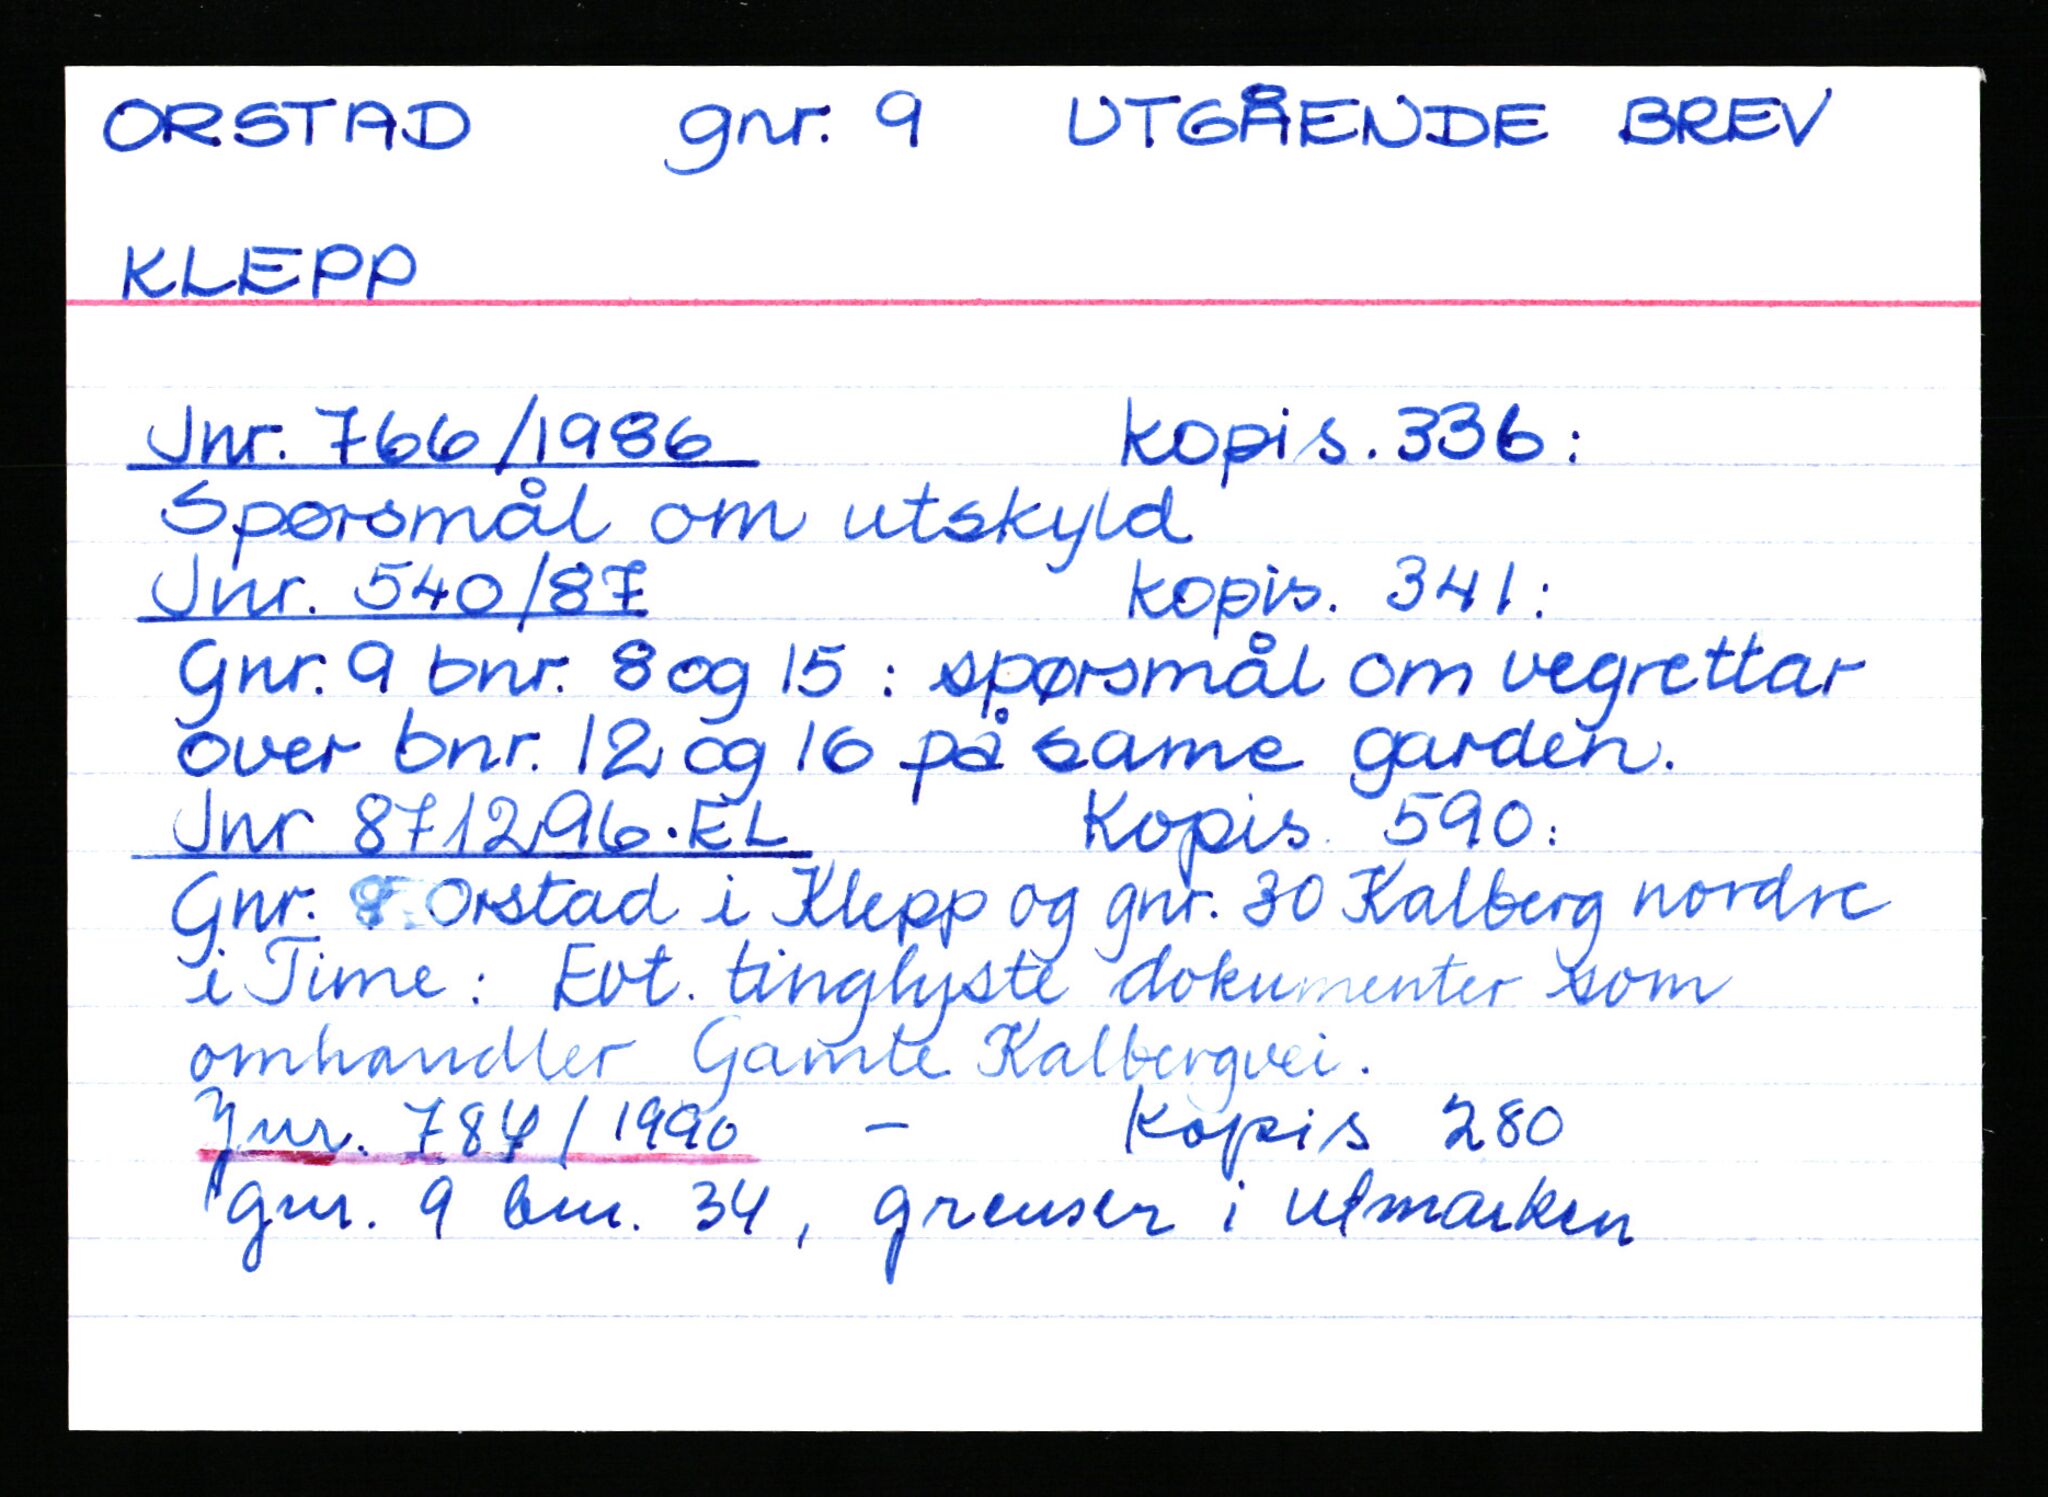 ORSTAD gnr. 9 UTGÅENDE BREV
KLEPP
Jnr. 766/1986 kopis. 336:
Spørsmål om utskyld
Jnr. 540/87 kopis. 341:
Gnr. 9 bnr. 8 og 15 : spørsmål om vegrettar
over bnr. 12 og 16 på same garden.
Jnr 871296.EL Kopis. 590:
Gnr. 9 Orstad i Klepp og gnr. 30 Kalberg nordre
i Time : Evt. tinglyste dokumenter som
omhandler Gamle Kalbergvei.
Jnr. 784/1990 - Kopis 280
gnr. 9 bnr. 34, grenser i utmarken